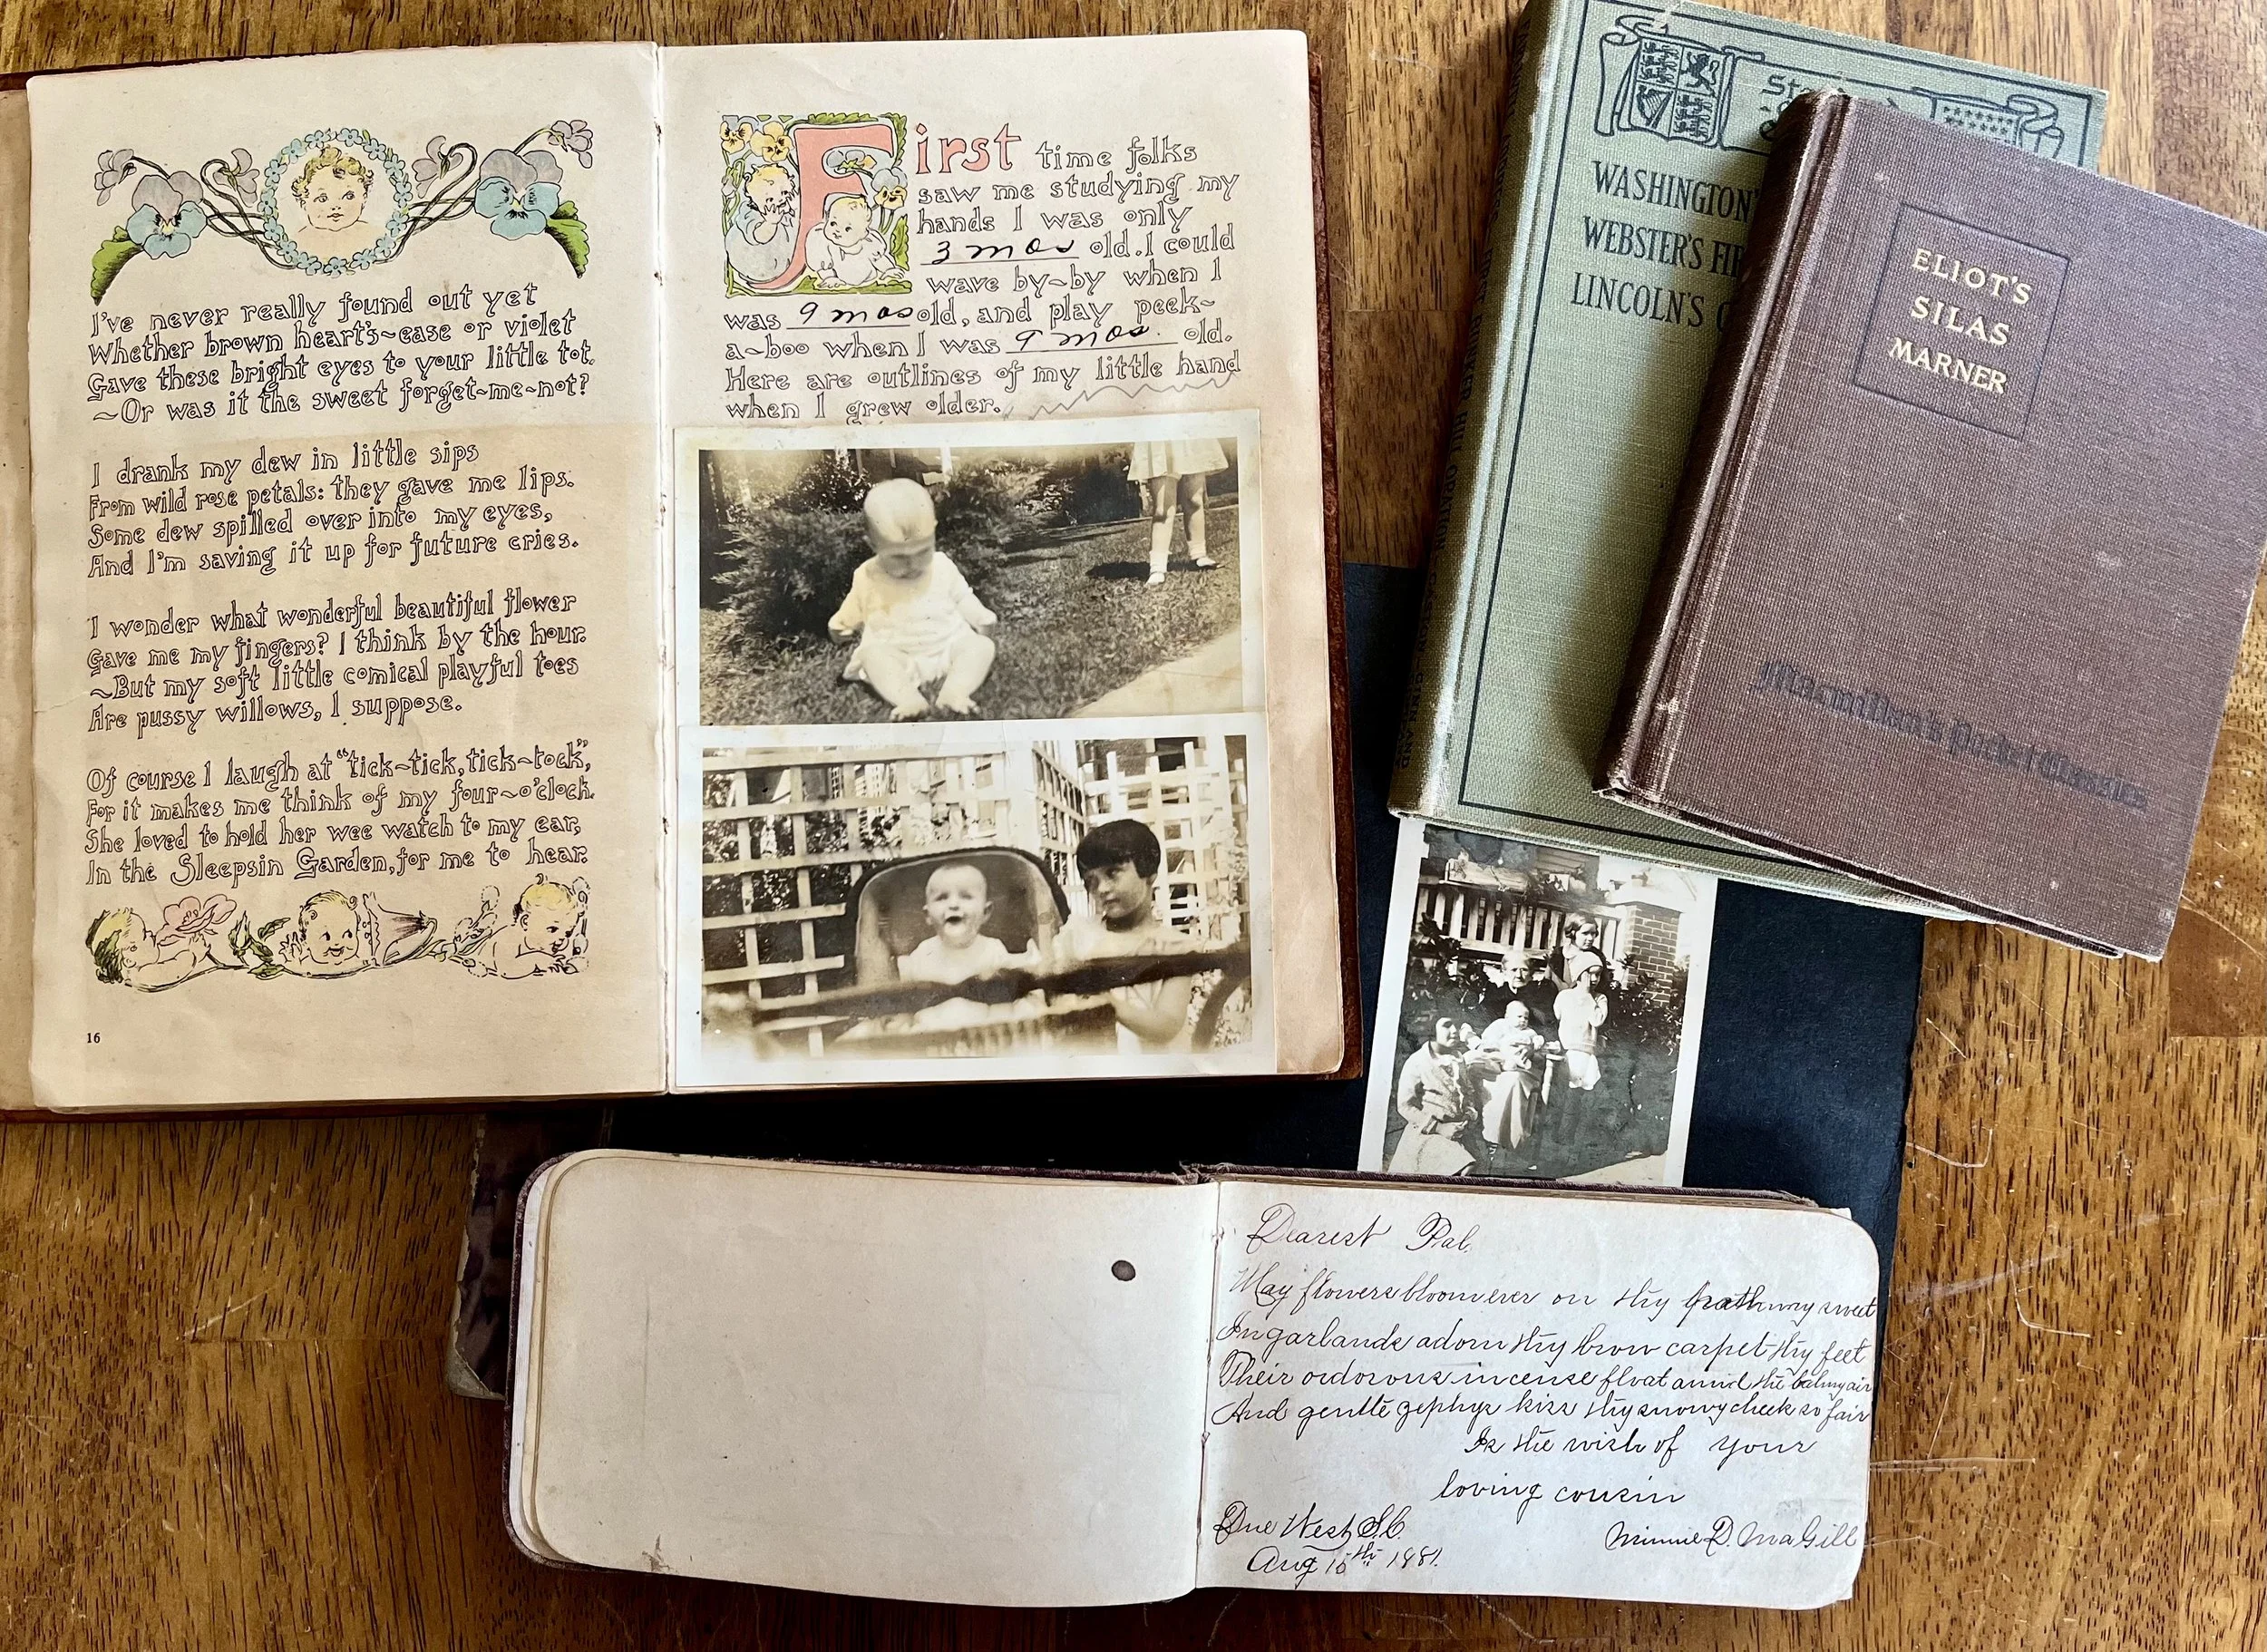 I've never really found out yet
Whether brown heart's~ease or violet
Gave these bright eyes to your little tot.
~Or was it the sweet forget~me~not?
I drank my dew in little sips
From wild rose petals: they gave me lips.
Some dew spilled over into my eyes,
And I'm saving it up for future cries.
I wonder what wonderful beautiful flower
Gave me my fingers? I think by the hour.
~But my soft little comical playful toes
Are pussy willows, I suppose.
Of course I laugh at "tick~tick, tick~tock",
For it makes me think of my four~o'clock.
She loved to hold her wee watch to my ear,
In the Sleepsin Garden, for me to hear.
16
First time folks
saw me studying my
hands I was only
3 mos old. I could
wave by~by when I
was 9 mos old, and play peek~
a~boo when I was 9 mos. old.
Here are outlines of my little hand
when I grew older.
WASHINGTON'
WEBSTER'S FI
LINCOLN'S
ELIOT'S
SILAS
MARNER
Macmillan's Pocket Classics
Dearest Pal.
May flowers bloom ever on thy pathway sweet
In garlands adorn thy brow carpet thy feet
Their ordorous incense float amid the balmy air
And gentle zephys kiss thy snowy cheek so fair
Is the wish of your
loving cousin
Due West S.C.
Minnie D. MaGill
Aug 15th 1881.